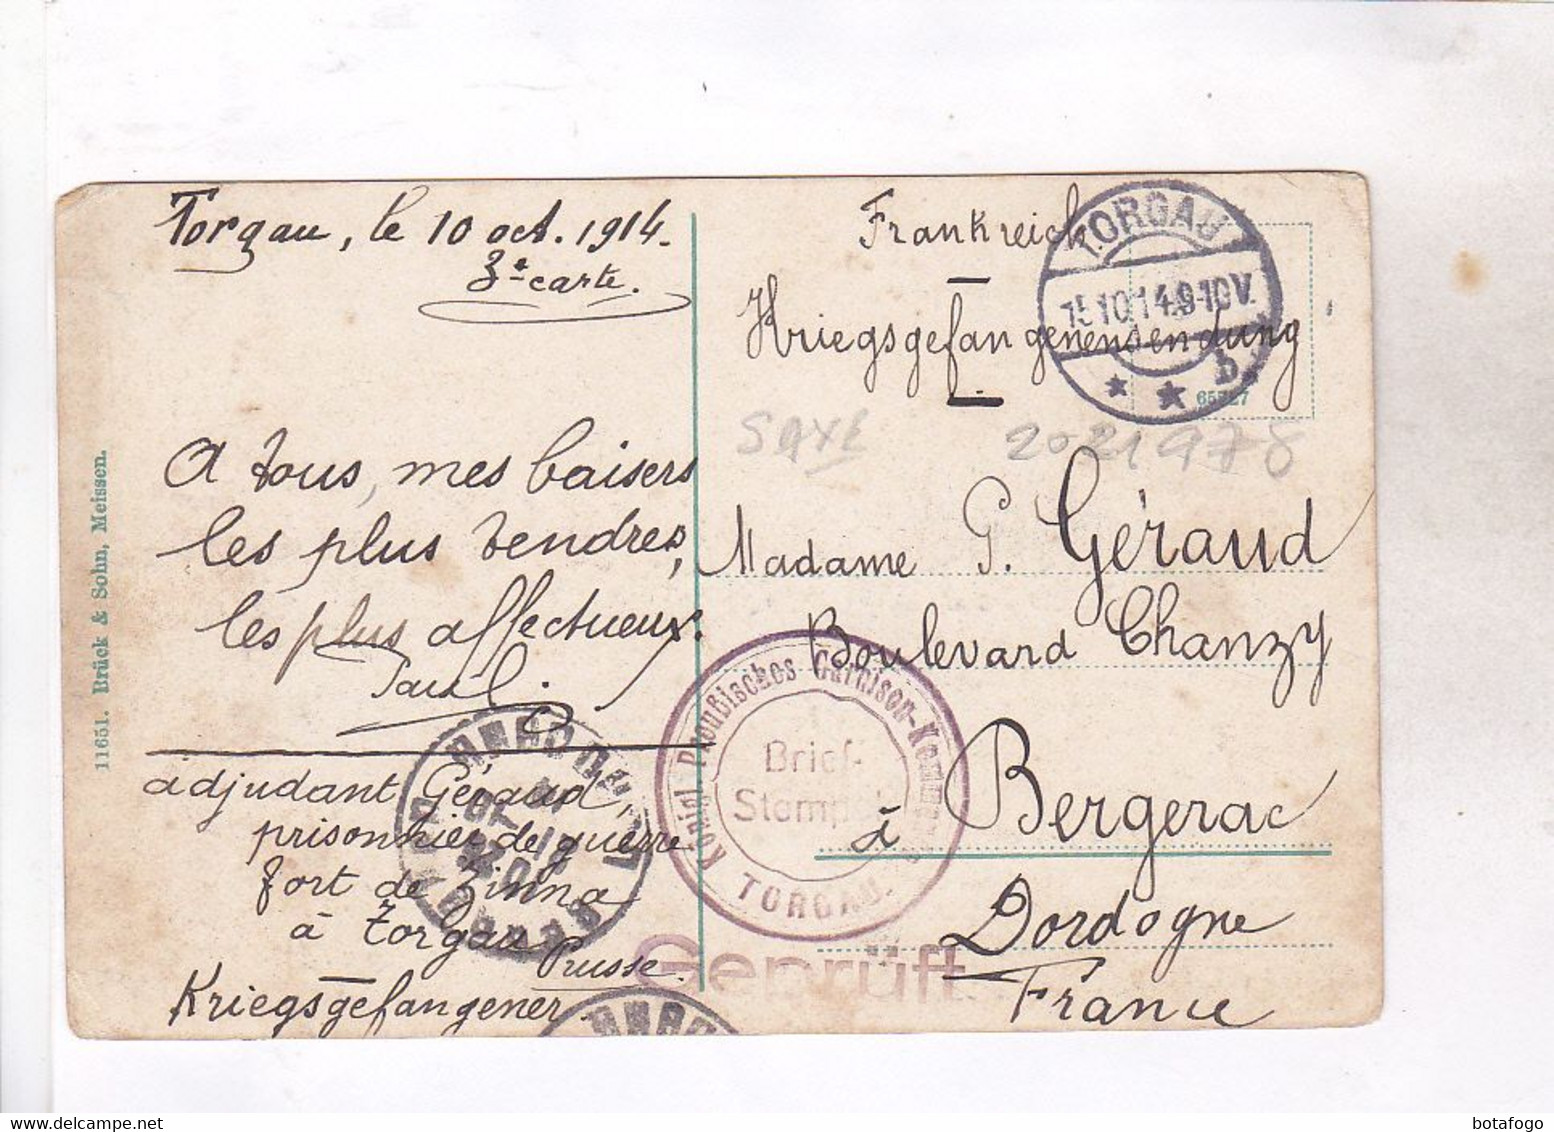 Torgau, le 10 oct. 1914.
3e carte.
A tous, mes baisers
les plus tendres,
les plus affectueux.
Paul
adjudant Géraud,
prisonnier de guerre
fort de Zinna
à Torgau
Prusse.
Kriegsgefangener
11651. Brück & Sohn, Meissen.
Frankreich
Kriegsgefangenensendung
TORGAU
15.10.14.9-10V.
b.
SAXE
Madame P. Géraud
Boulevard Chanzy
à Bergerac
Dordogne
France
Königl. Preußisches Garnison-Kommando
Brief-
Stempel
TORGAU.
Geprüft
botafogo